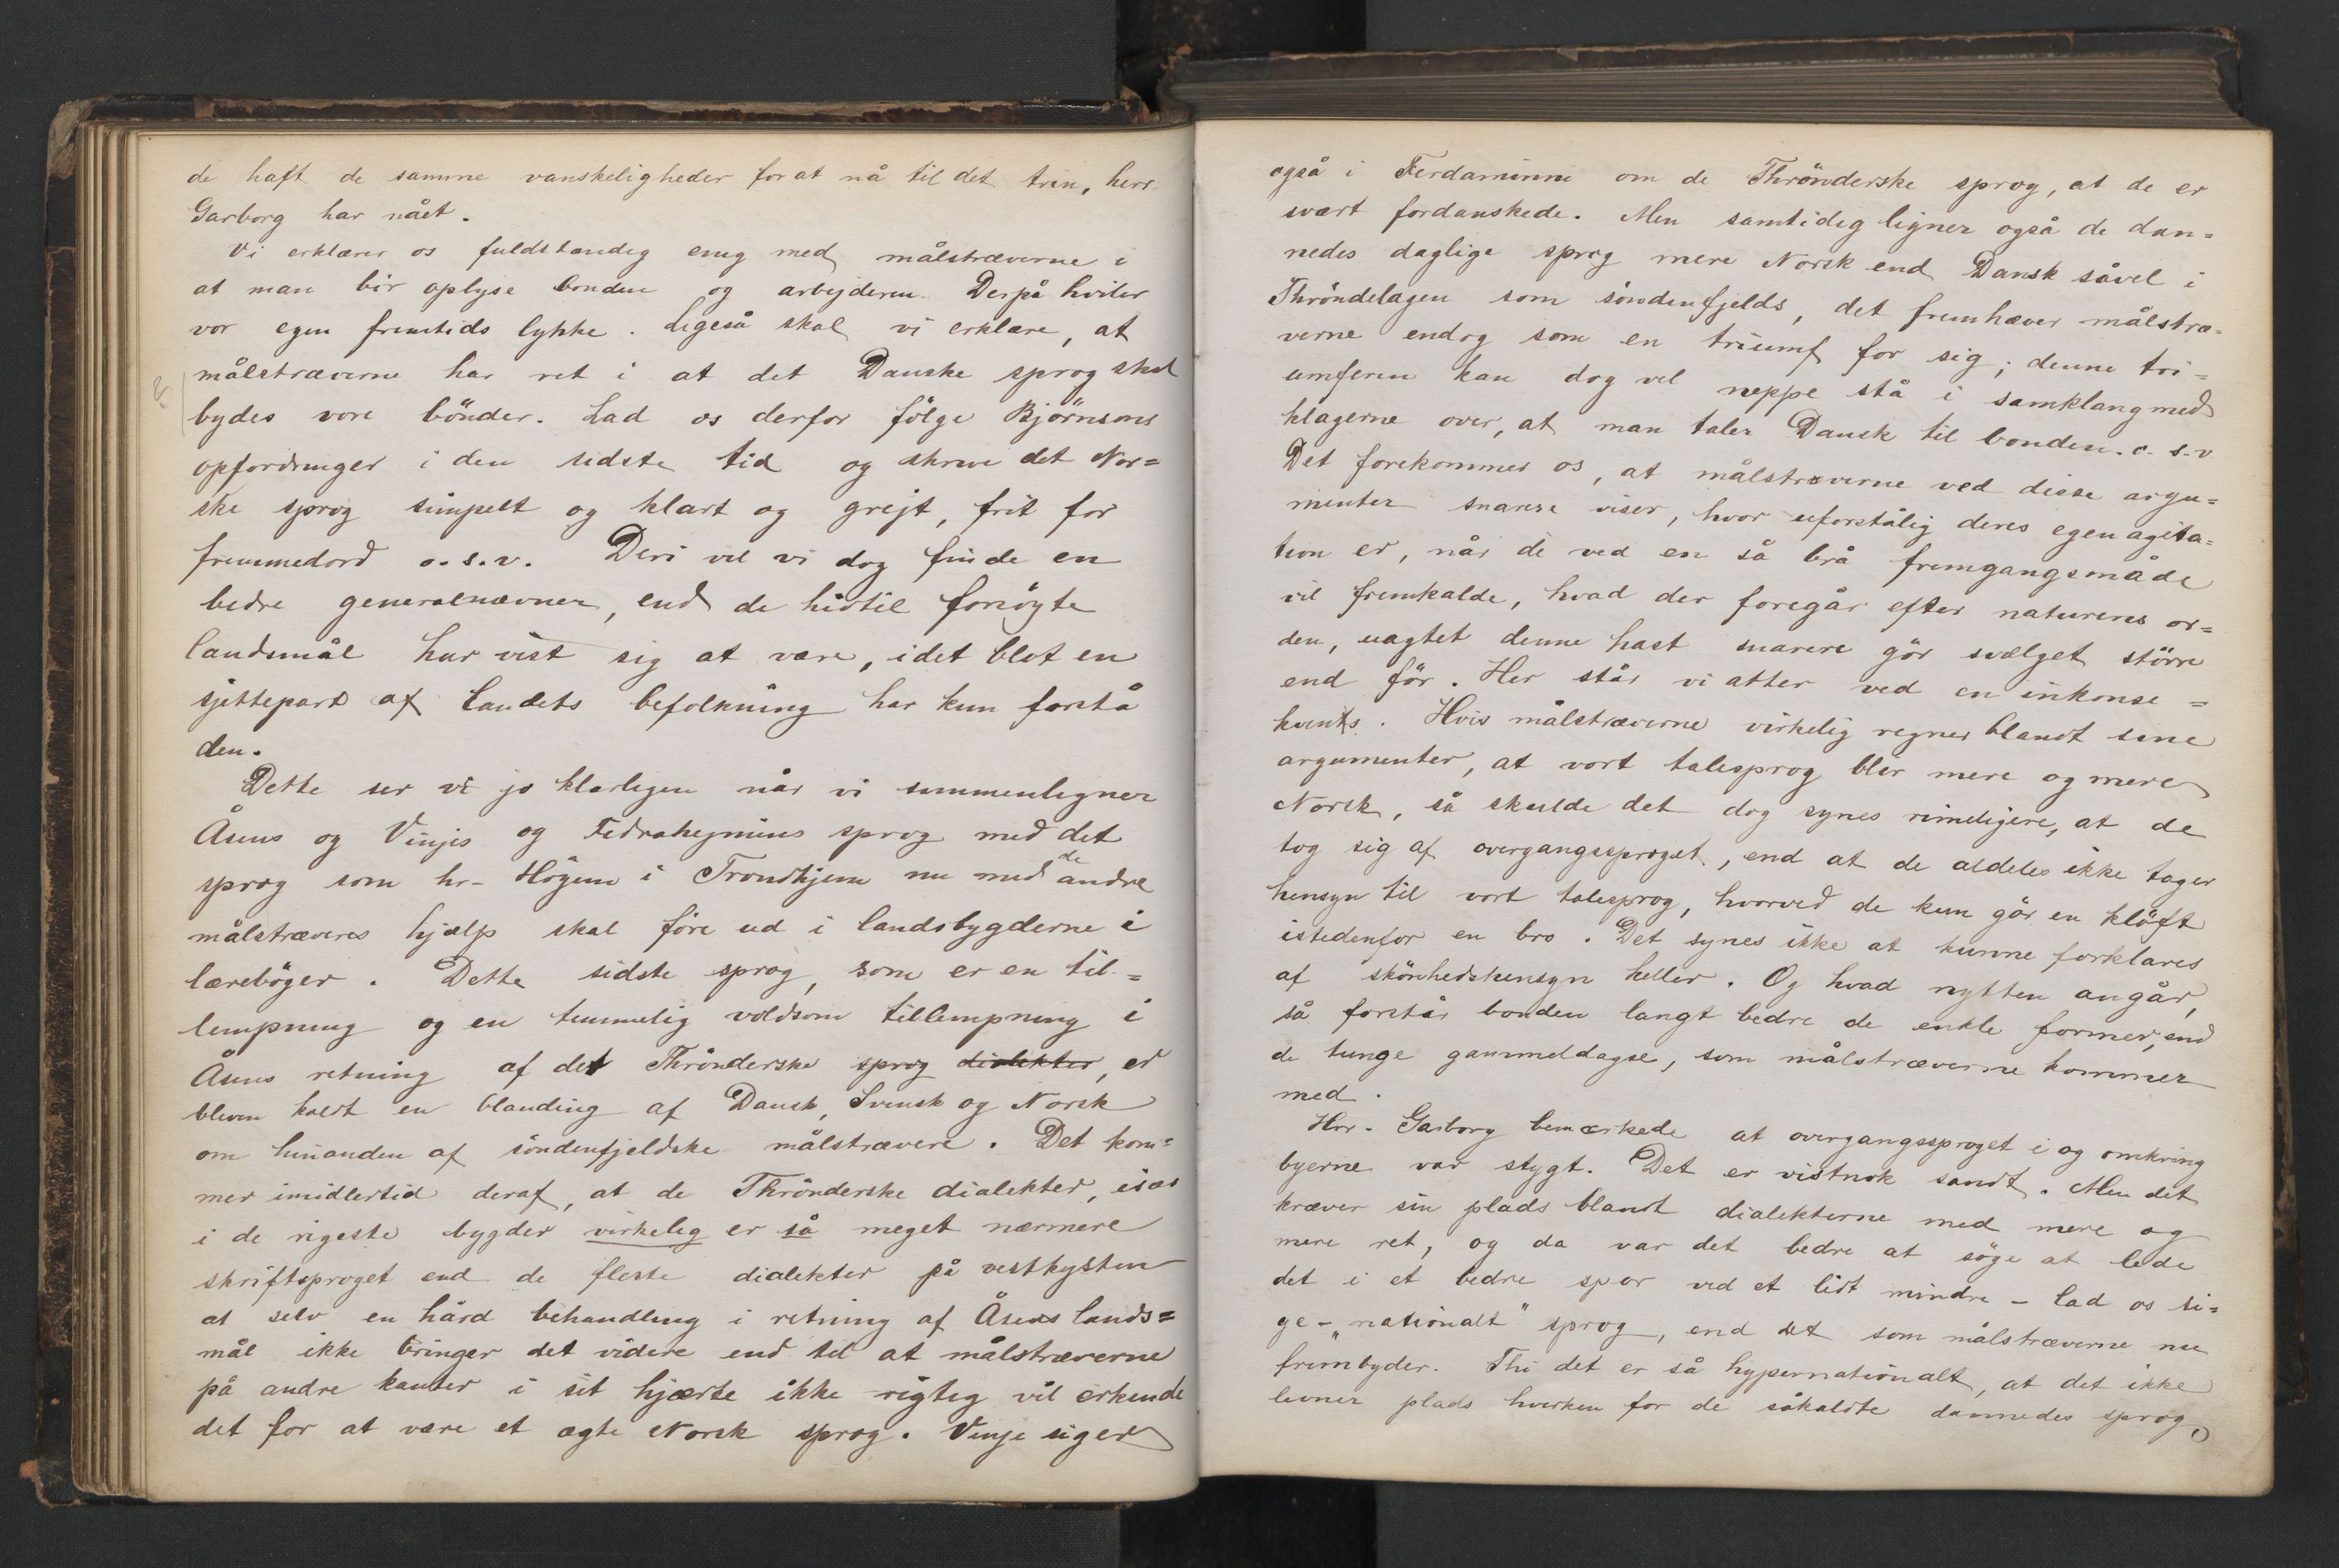 de haft de samme vanskeligheder for at nå til det trin, herr
Garborg har nået.
Vi erklærer os fuldstændig enig med målstræverne i
at man bör oplyse bonden og arbejderen. Derpå hviler
vor egen fremtids lykke. Ligeså skal vi erklære, at
målstræverne har ret i at det Danske sprog skal
bydes vore bönder. Lad os derfor fölge Björnsons
opfordringer i den sidste tid og skrive det Nor=
ske sprog simpelt og klart og grejt, frit for
fremmedord o.s.v. Deri vil vi dog finde en
bedre generalnævner, end de hidtil forsögte
landsmål har vist sig at være, idet blot en
sjettepart af landets befolkning har kun forstå
den.
Dette ser vi jo klarligen når vi sammenligner
Åsens og Vinjes og Fedraheimens sprog med det
sprog som hr. Högem i Trondhjem nu med de andre
målstræveres hjælp skal före ud i landsbygderne i
lærebøger. Dette sidste sprog, som er en til=
lempning og en temmelig voldsom tillempning i
Åsens retning af det Thrönderske sprog dialekter, er
bleven kaldt en blanding af Dansk, Svensk og Norsk
om hinanden af söndenfjeldske målstrævere. Det kom=
mer imidlertid deraf, at de Thrönderske dialekter, især
i de rigeste bygder virkelig er så meget nærmere
skriftsproget end de fleste dialekter på vestkysten
at selv en hård behandling i retning af Åsens lands=
mål ikke bringer det videre end til at målstræverne
på andre kanter i sit hjærte ikke rigtig vil erkende
det for at være et ægte Norsk sprog. Vinje siger
også i Ferdaminni om de Thrönderske sprog, at de er
svært fordanskede. Men samtidig ligner også de dan=
nedes daglige sprog mere Norsk end Dansk såvel i
Thröndelagen som söndenfjelds, det fremhæver målstræ=
verne endog som en triumf for sig; denne tri=
umferen kan dog vel neppe stå i samklang med
klagerne over, at man taler Dansk til bonden. o. s. v
Det forekommer os, at målstræverne ved disse argu=
menter snarere viser, hvor uforståelig deres egen agita=
tion er, når de ved en så brå fremgangsmåde
vil fremkalde, hvad der foregår efter naturens or=
den, uagtet denne hast snarere gör svælget större
end för. Her står vi atter ved en inkonse=
kvents. Hvis målstræverne virkelig regner blandt sine
argumenter, at vort talesprog blir mere og mere
Norsk, så skulde det dog synes rimeligere, at de
tog sig af overgangssproget, end at de aldeles ikke tager
hensyn til vort talesprog, hvorved de kun gör en klöft
istedenfor en bro. Det synes ikke at kunne forklares
af skönhedshensyn heller. Og hvad nytten angår,
så forstår bonden langt bedre de enkle former, end
de tunge gammeldagse, som målstræverne kommer
med.
Hrr. Garborg bemærkede at overgangssproget i og omkring
byerne var stygt. Det er vistnok sandt. Men det
kræver sin plads blandt dialekterne med mere og
mere ret, og da var det bedre at söge at lede
det i et bedre spor ved et lidt mindre – lad os si=
ge – „nationalt" sprog, end det som målstræverne nu
frembyder. Thi det er så hypernationalt, at det ikke
levner plads hverken for de såkaldte dannedes sprog,